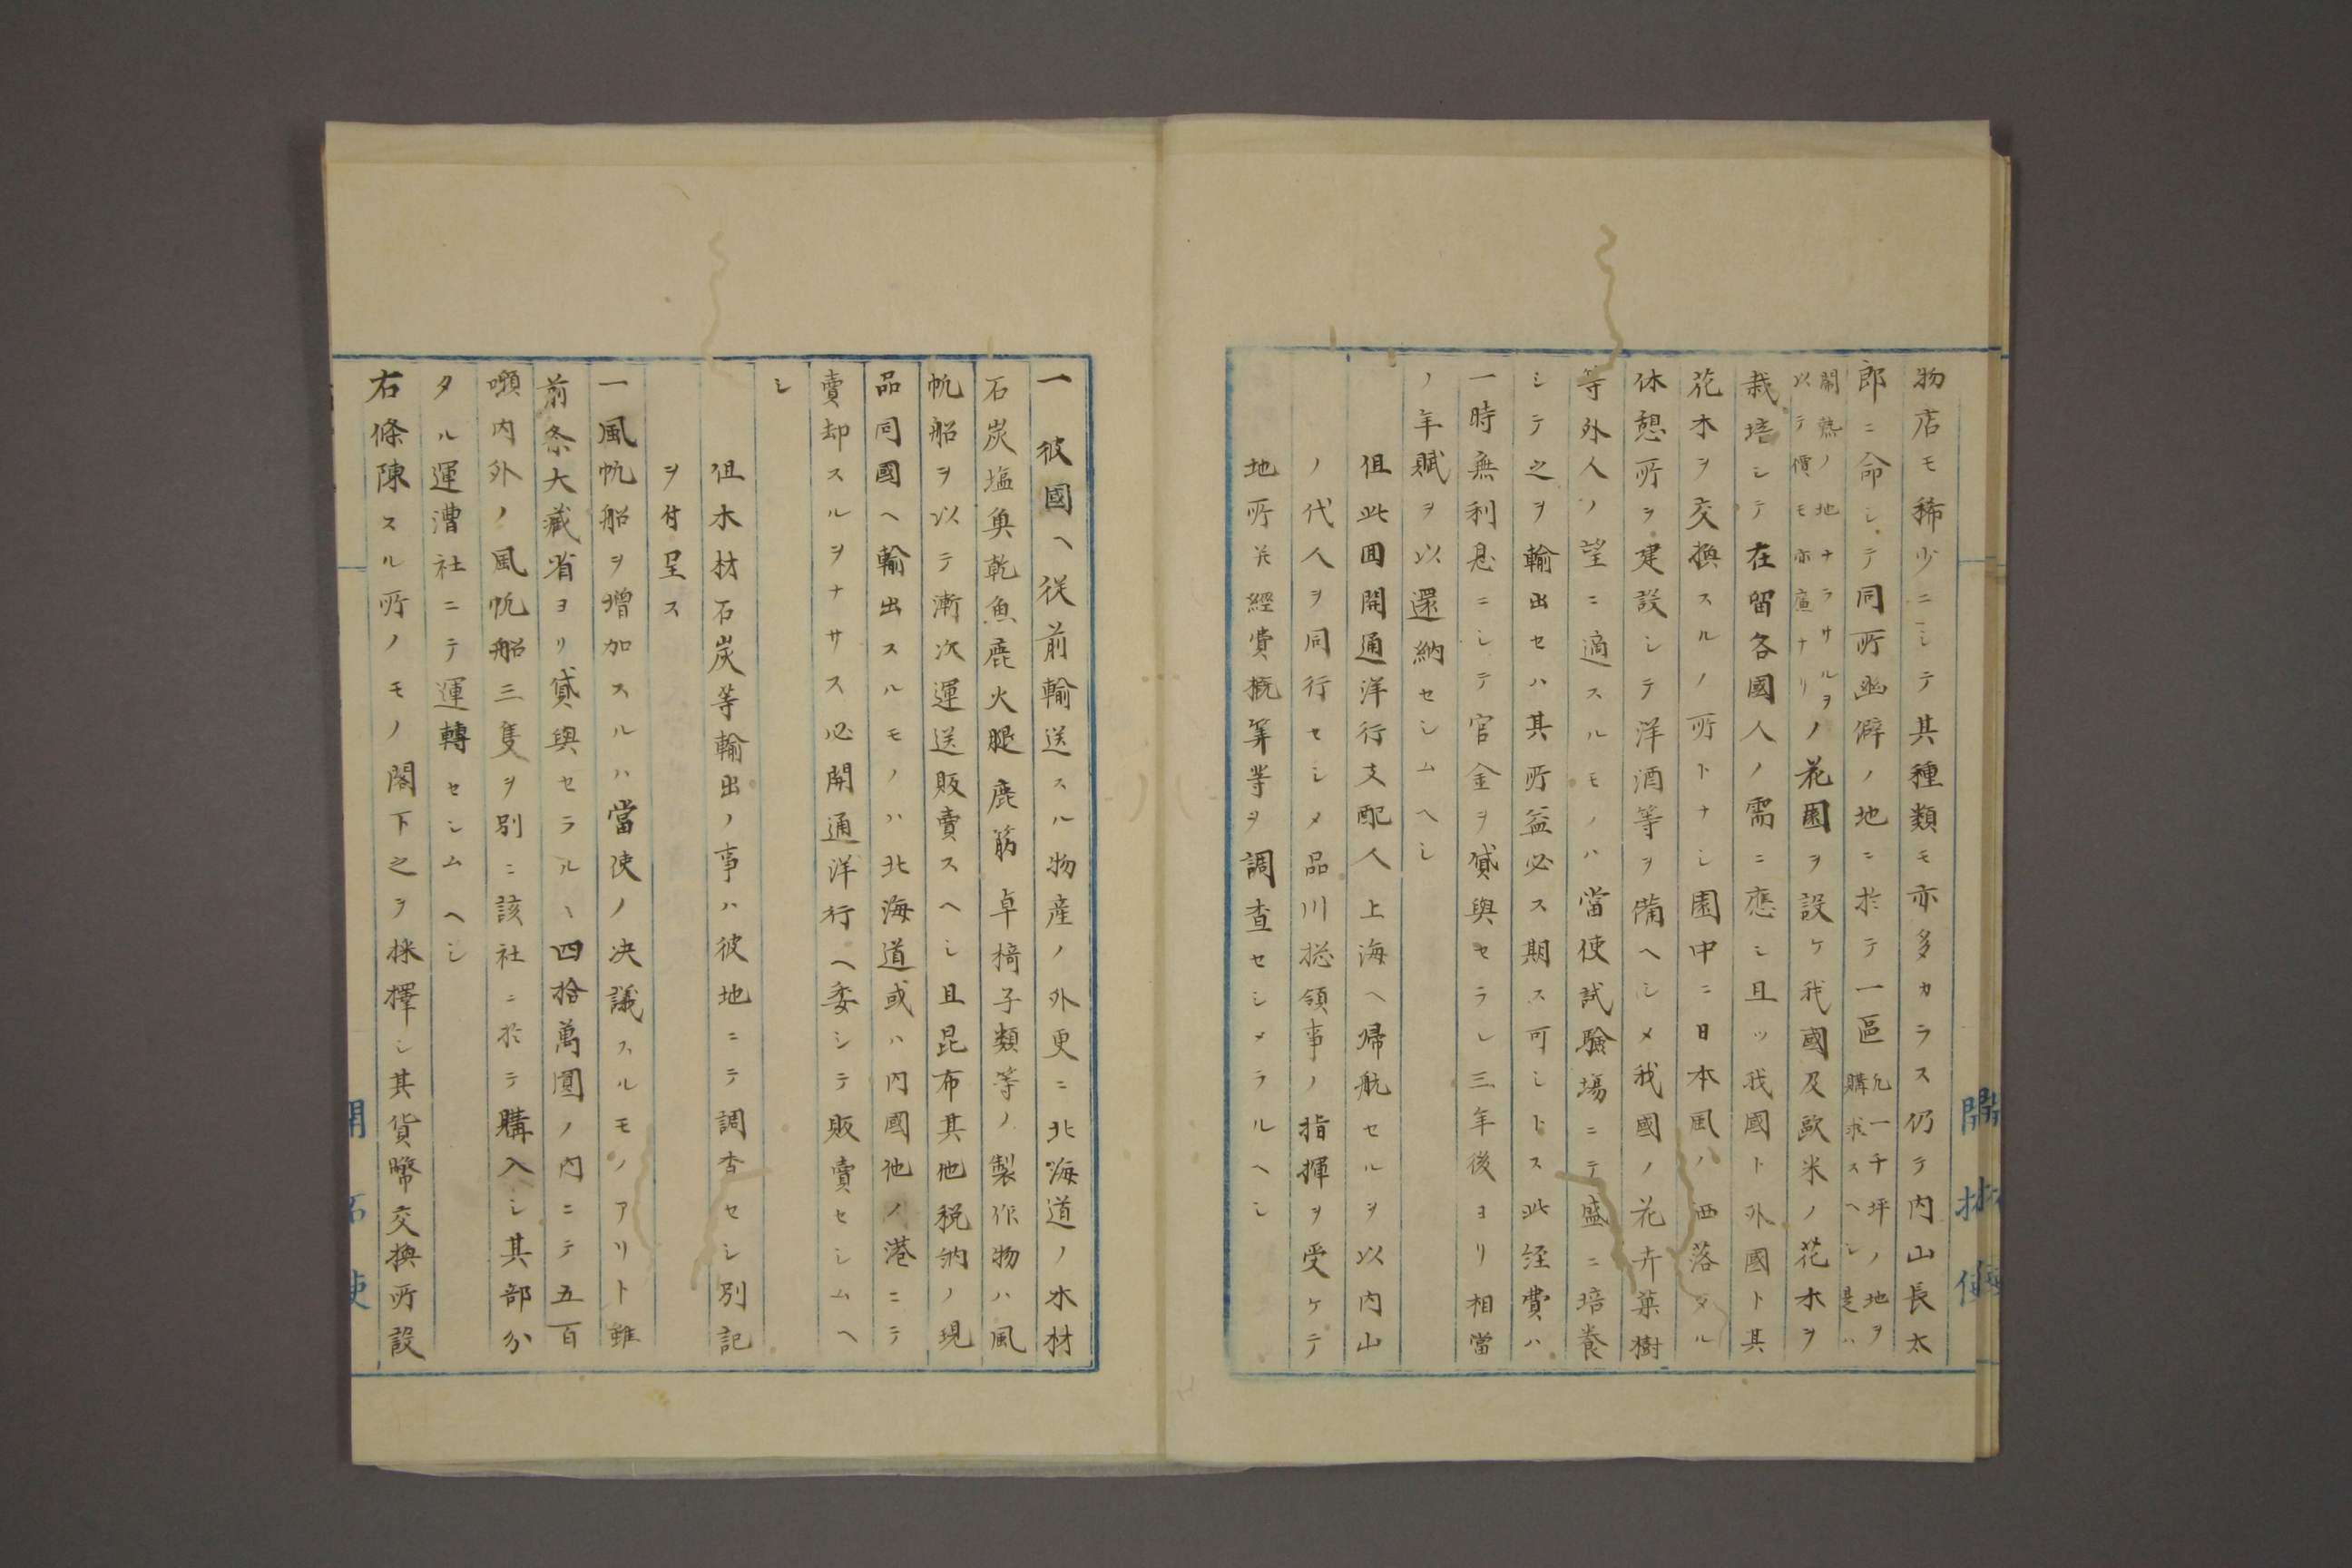 物店モ稀少ニシテ其種類モ亦多カラス仍テ内山長太
郎ニ命シテ同所幽僻ノ地ニ於テ一區凡一千坪ノ地ヲ購求スヘシ是ハ
閙熱ノ地ナラサルヲ以テ價モ亦廉ナリノ花園ヲ設ケ我國及歐米ノ花木ヲ
栽培シテ在留各國人ノ需ニ應シ且ツ我國ト外國ト其
花木ヲ交換スルノ所トナシ園中ニ日本風ノ洒落タル
休憩所ヲ建設シテ洋酒等ヲ備ヘシメ我國ノ花卉菓樹
等外人ノ望ニ適スルモノハ當使試驗塲ニテ盛ニ培養
シテ之ヲ輸出セハ其所益必ス期ス可シトス此経費ハ
一時無利息ニシテ官金ヲ貸與セラレ三年後ヨリ相當
ノ年賦ヲ以還納セシムヘシ
但此囬開通洋行支配人上海ヘ帰航セルヲ以内山
ノ代人ヲ同行セシメ品川総領事ノ指揮ヲ受ケテ
地所并經費概筭等ヲ調査セシメラルヘシ
開拓使
一彼國ヘ従前輸送スル物産ノ外更ニ北海道ノ木材
石炭塩魚乾魚鹿火腿鹿筋卓椅子類等ノ製作物ハ風
帆船ヲ以テ漸次運送販賣スヘシ且昆布其他税納ノ現
品同國ヘ輸出スルモノハ北海道或ハ内國他ノ港ニテ
賣却スルヲナサス必開通洋行ヘ委シテ販賣セシムヘ
シ
但木材石炭等輸出ノ事ハ彼地ニテ調査セシ別記
ヲ付呈ス
一風帆船ヲ増加スルハ當使ノ决議スルモノアリト雖
前条大藏省ヨリ貸與セラルヽ四拾萬圓ノ内ニテ五百
噸内外ノ風帆船三隻ヲ別ニ該社ニ於テ購入シ其部分
タル運漕社ニテ運轉セシムヘシ
右條陳スル所ノモノ閣下之ヲ採擇シ其貨幣交換所設
開拓使